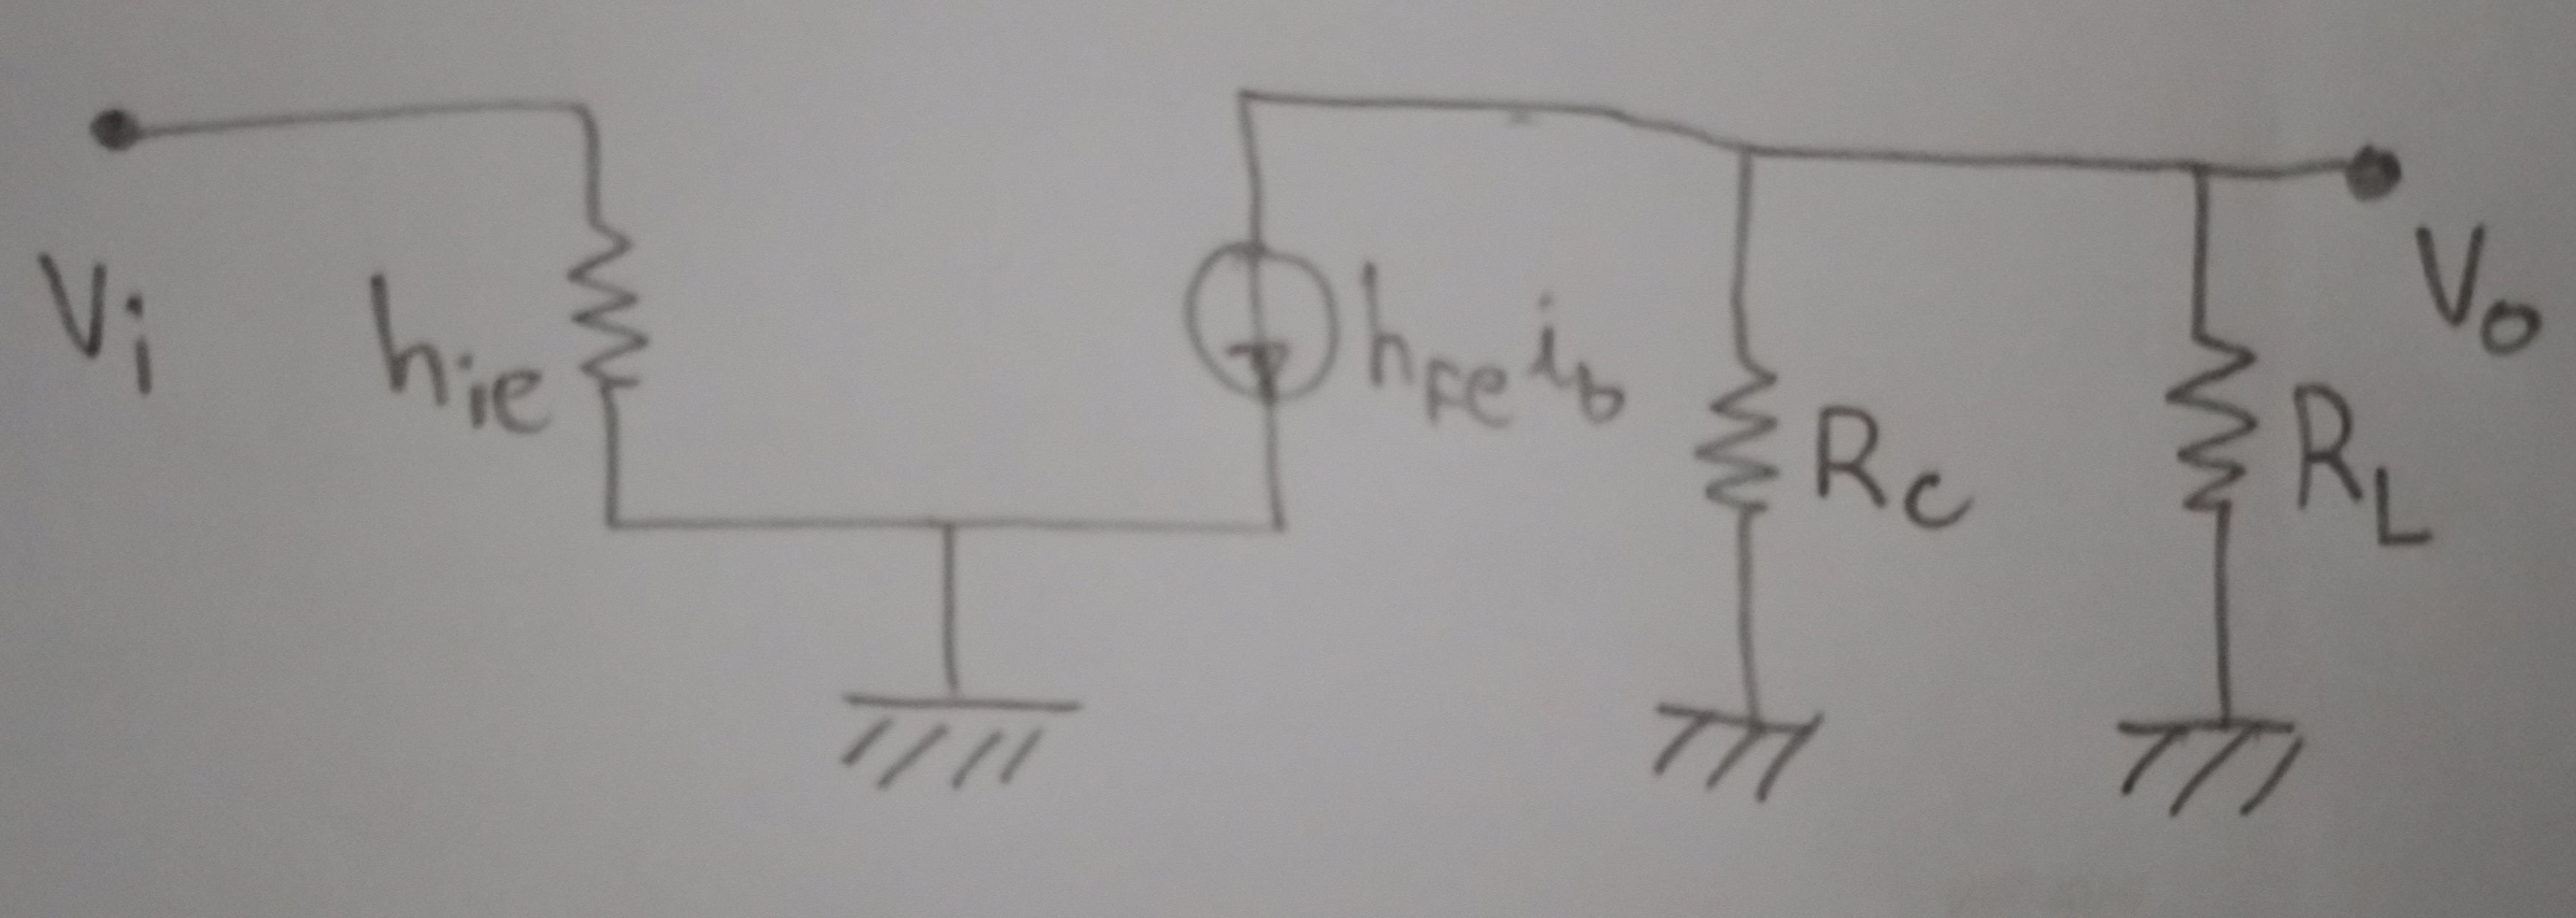 Vi
hie
hFe ib
RC
RL
Vo